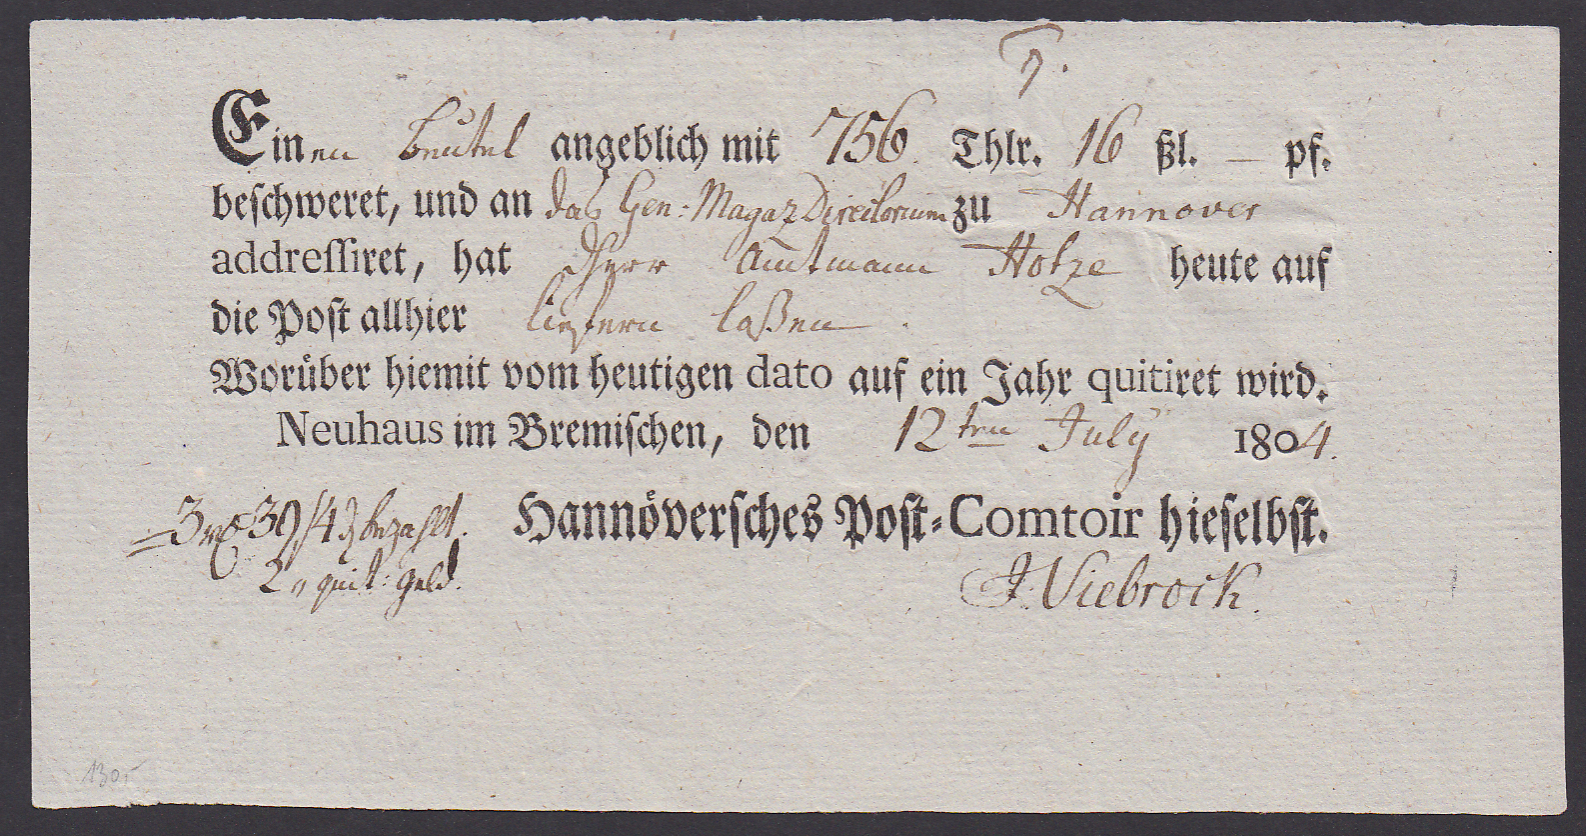 Einen Beutel angeblich mit 756. Thlr. 16 ßl. — pf.
beschweret, und an das Gen: Magaz Directorium zu Hannover
addressiret, hat Herr Amtmann Hotze heute auf
die Post allhier liefern laßen.
Worüber hiemit vom heutigen dato auf ein Jahr quitiret wird.
Neuhaus im Bremischen, den 12ten July 1804.
Hannöversches Post-Comtoir hieselbst.
3 39 bezahlt.
2 " quit: Geld.
J. Viebrock.
130,-